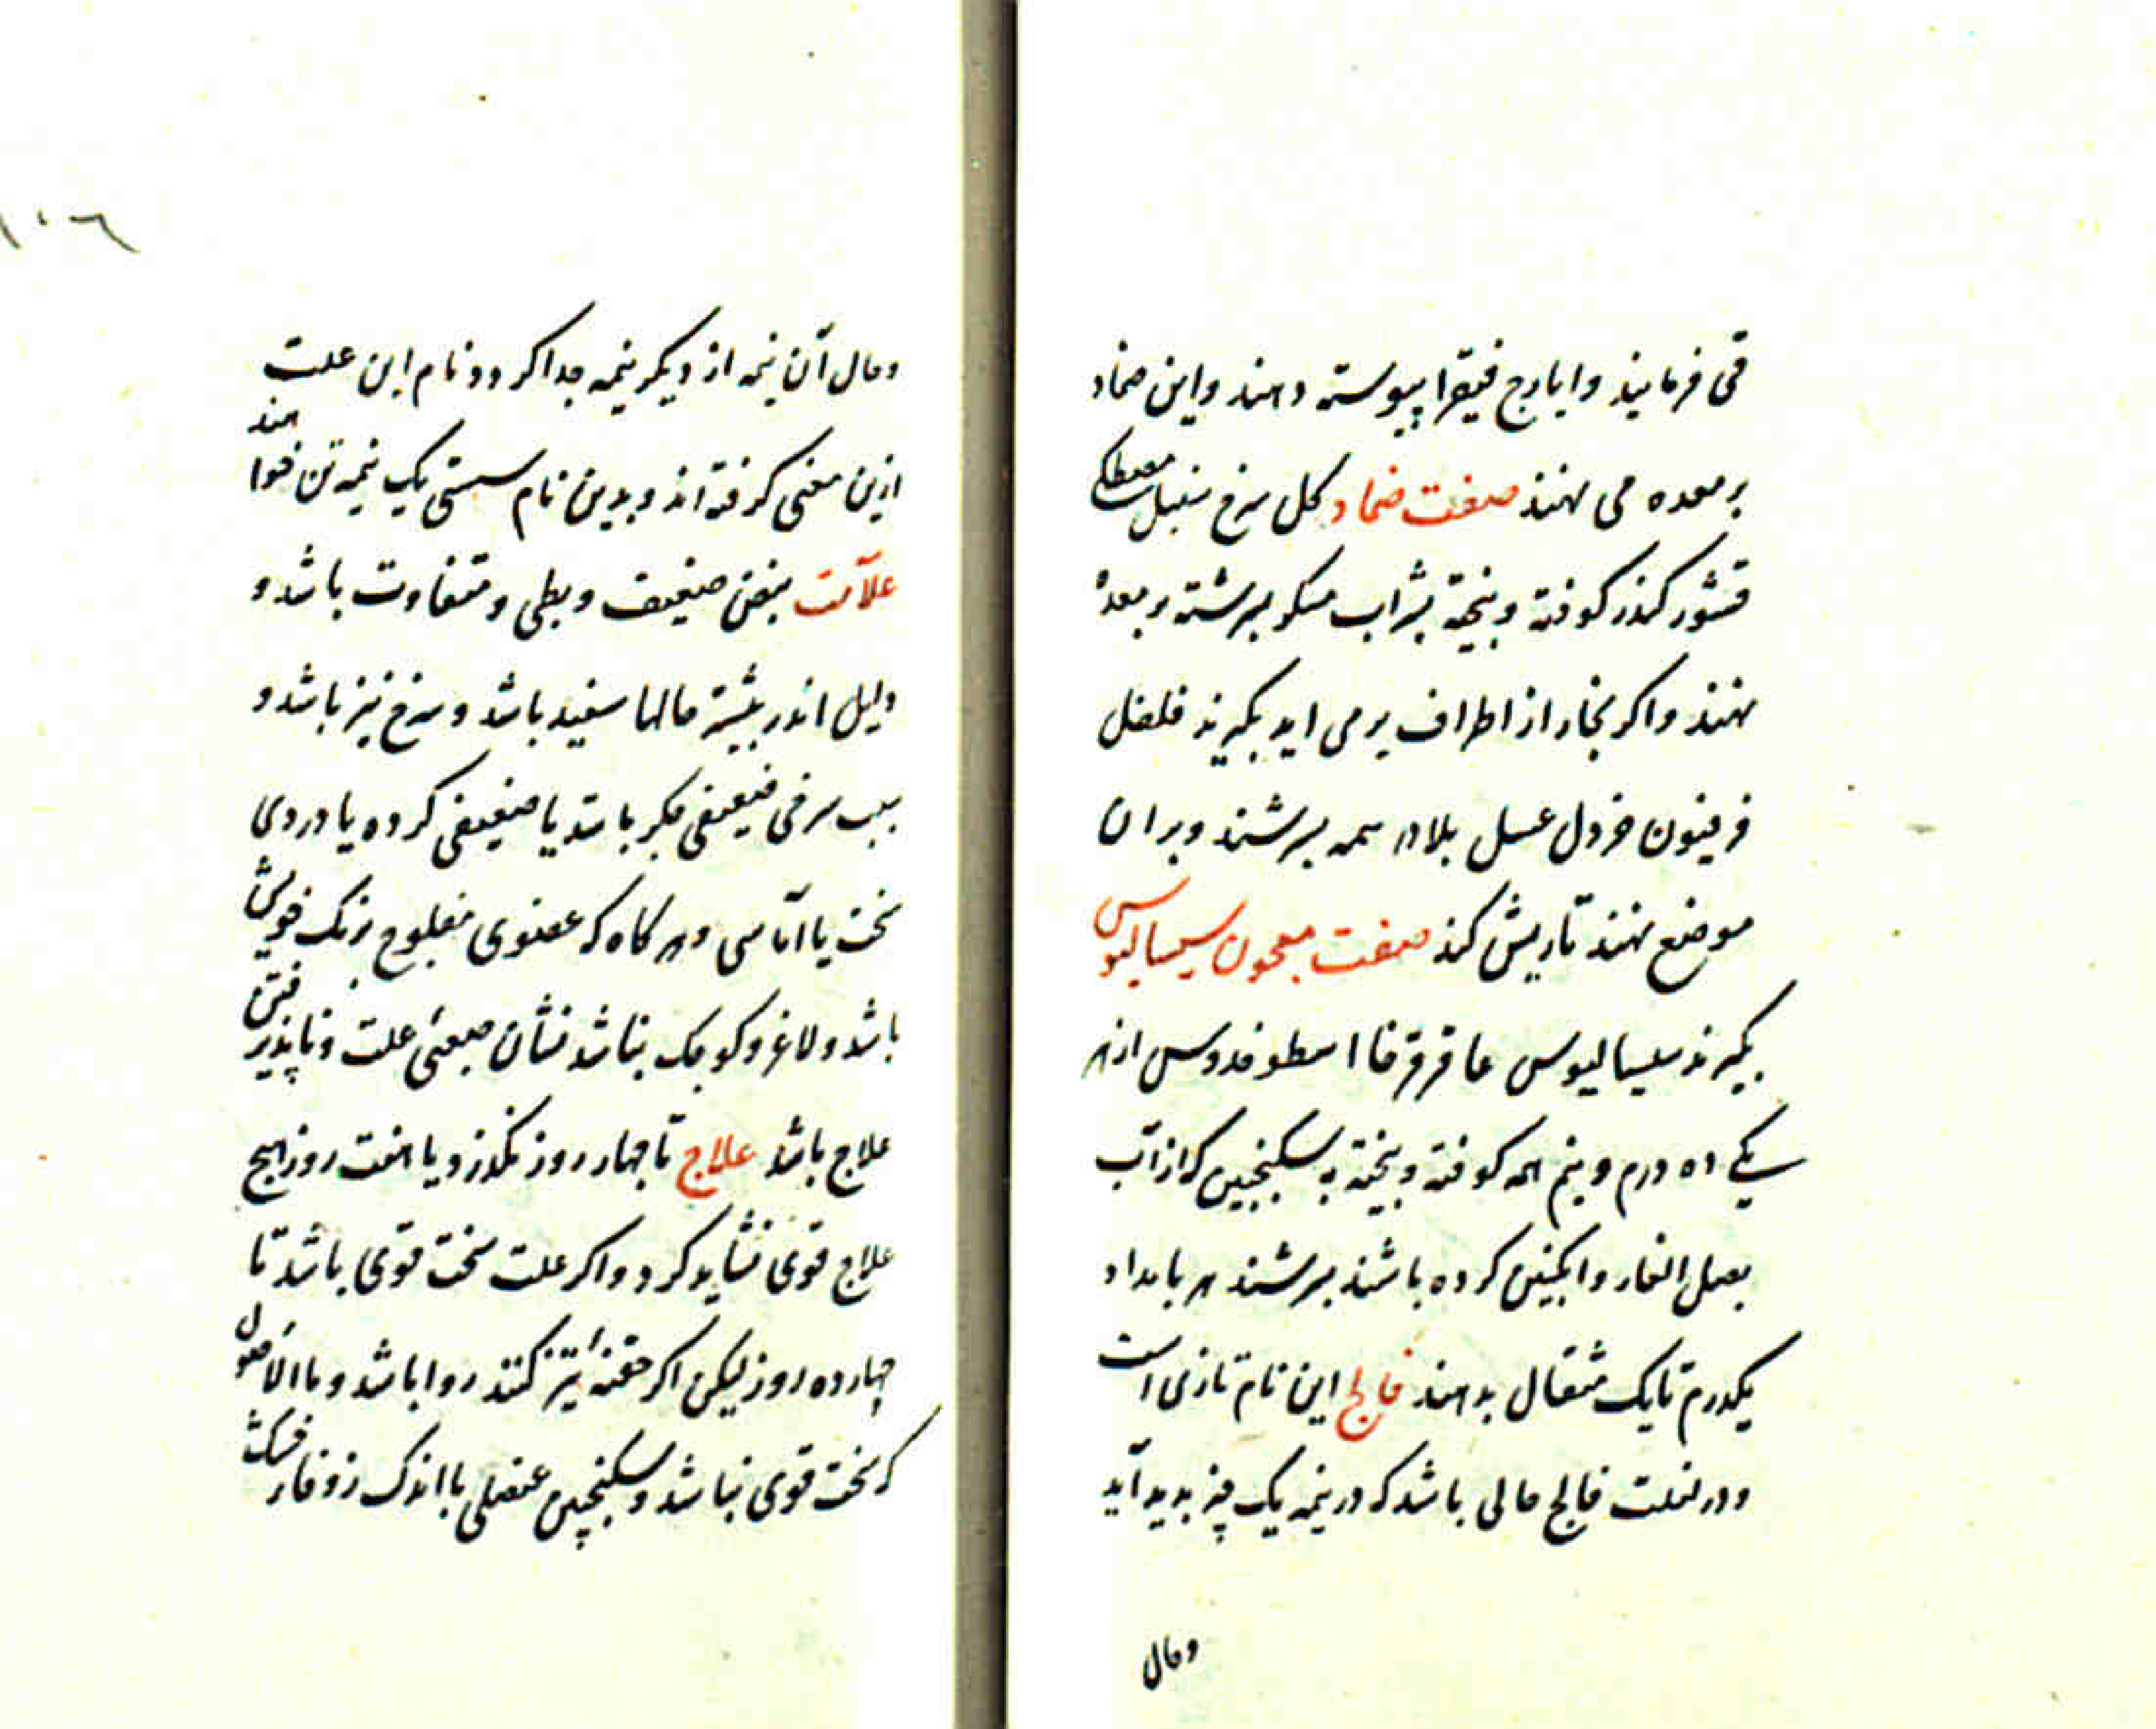 قی فرمایند و ایارج فیقرا پیوسته دهند و این ضماد
بر معده می نهند صفت ضماد کل سرخ سنبل مصطکی
قشور کندر کوفته و بیخته بشراب مسکو بسرشته بر معدهٔ
نهند و اکر بخار از اطراف برمی اید بکیرند فلفل
فرفیون خردل عسل بلادر همه بسرشند و بر ان
موضع نهند تا ریش کند صفت معجون سیسالیوس
بکیرند سیسالیوس عاقرقرحا اسطوخدوس از هر
یکی ده درم و نیم همه کوفته و بیخته به سکنجبین که از آب
بصل الفار و انکبین کرده باشند بسرشند هر بامداد
یکدرم تا یک مثقال بدهند فالج این نام تازی است
و در لغت فالج حالی باشد که در نیمه یک چیز بدید آید
وحال
١٠٦
وحال آن نیمه از دیکر نیمه جدا کردد نام این علت
ازین معنی کرفته اند و بدین نام سستی یک نیمه تن خواهند
علآمت نبض ضعیف و بطی و متفاوت باشد و
دلیل اندر بیشتر حالها سفید باشد و سرخ نیز باشد و
سبب سرخی ضعیفی جکر باشد یا ضعیفی کرده یا دردی
سخت یا آماسی و هر کاه که عضوی مفلوج برنک خویش
باشد و لاغر و کوچک نباشد نشان صعبیٔ علت و ناپذیرفتن
علاج باشد علاج تا چهار روز نکذرد یا هفت روز هیچ
علاج قوی نشاید کرد و اکر علت سخت قوی باشد تا
چهارده روز لیکن اکر حقنهٔ تیز کنند روا باشد و ماالاصول
که سخت قوی نباشد و سکنجبین عنصلی با اندک زوفار خشک